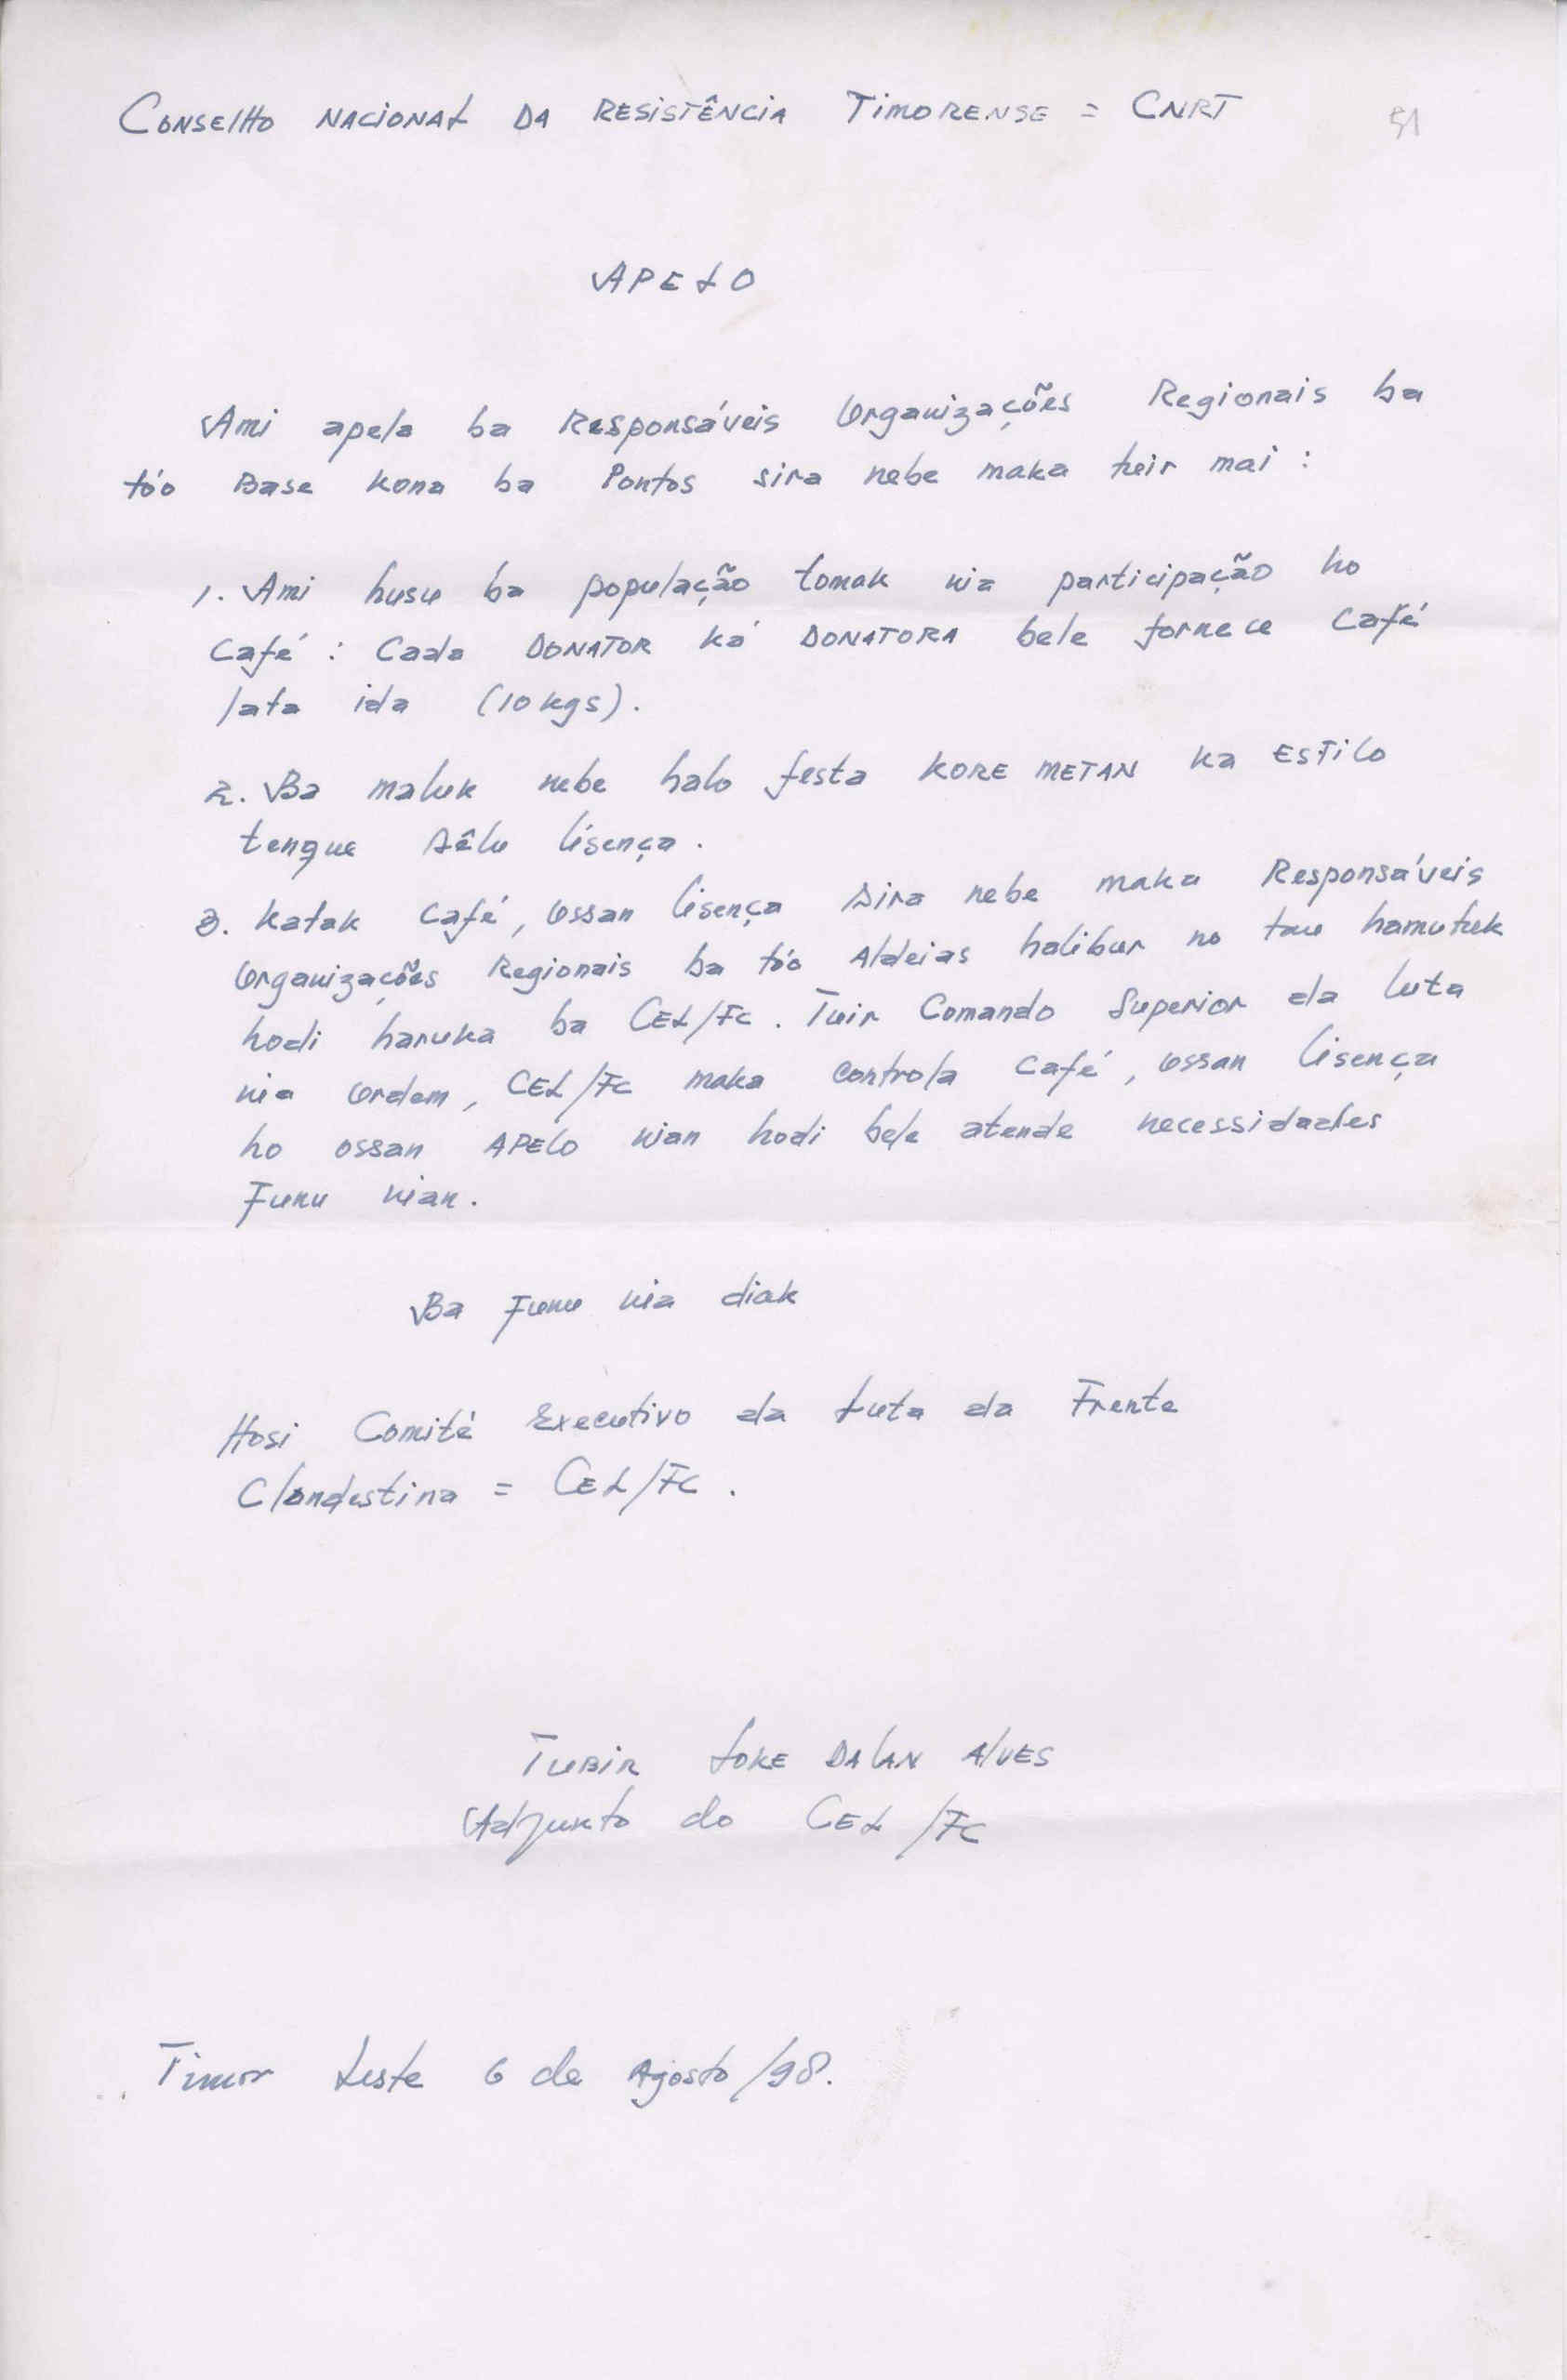 Conselho Nacional da Resistência Timorense = CNRT
51
APELO
Ami apela ba Responsáveis Organizações Regionais ba
tó'o Base kona ba Pontos sira nebe maka tuir mai :
1. Ami husu ba população tomak nia participação ho
Café : Cada DONATOR ká DONATORA bele fornece Café
lata ida (10 kgs).
2. Ba maluk nebe halo festa KORE METAN ka ESTILO
tengue sêlu lisença.
3. Katak Café, ossan lisença sira nebe maka Responsáveis
Organizações Regionais ba tó'o Aldeias halibur no tau hamutuk
hodi haruka ba CEL/FC. Tuir Comando Superior da luta
nia ordem, CEL/FC maka controla Café, ossan lisença
ho ossan APELO nian hodi bele atende necessidades
Funu nian.
Ba Funu nia diak
Hosi Comité Executivo da Luta da Frente
Clandestina = CEL/FC.
TUBIR LOKE DALAN ALVES
Adjunto do CEL/FC
Timor Leste 6 de Agosto/98.